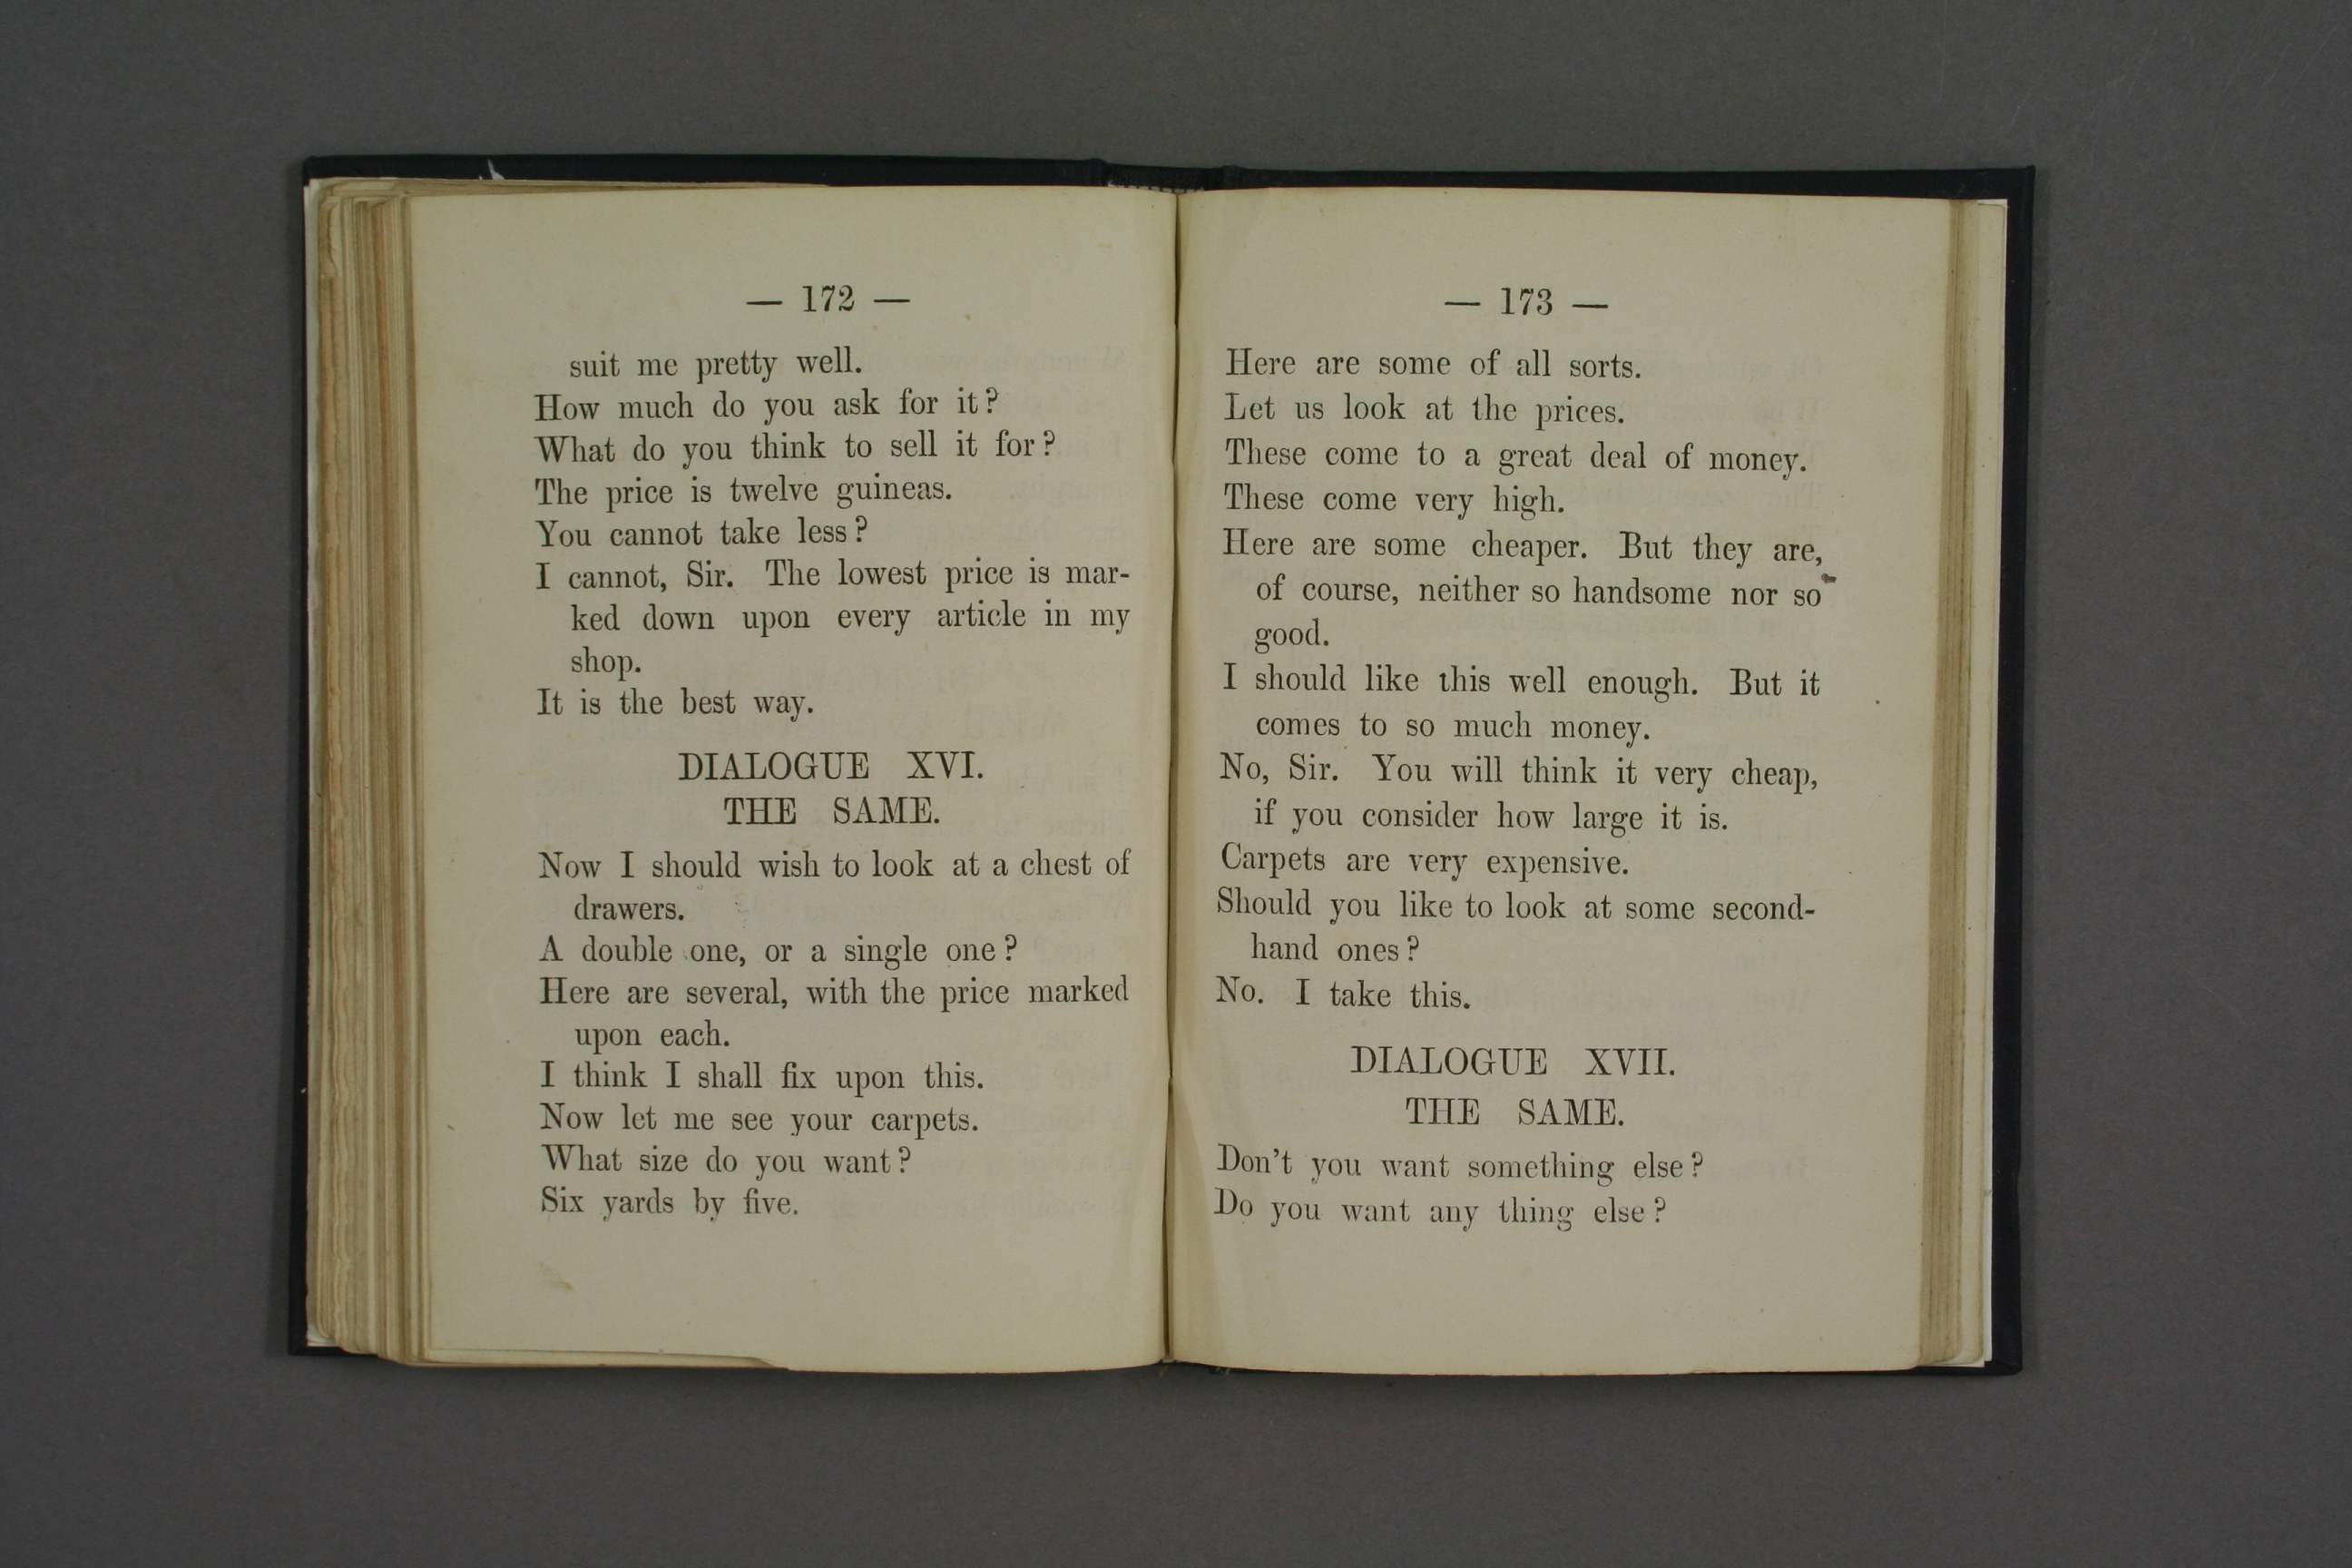 — 172 —
suit me pretty well.
How much do you ask for it?
What do you think to sell it for?
The price is twelve guineas.
You cannot take less?
I cannot, Sir. The lowest price is mar-
ked down upon every article in my
shop.
It is the best way.
DIALOGUE XVI.
THE SAME.
Now I should wish to look at a chest of
drawers.
A double one, or a single one?
Here are several, with the price marked
upon each.
I think I shall fix upon this.
Now let me see your carpets.
What size do you want?
Six yards by five.
— 173 —
Here are some of all sorts.
Let us look at the prices.
These come to a great deal of money.
These come very high.
Here are some cheaper. But they are,
of course, neither so handsome nor so
good.
I should like this well enough. But it
comes to so much money.
No, Sir. You will think it very cheap,
if you consider how large it is.
Carpets are very expensive.
Should you like to look at some second-
hand ones?
No. I take this.
DIALOGUE XVII.
THE SAME.
Don't you want something else?
Do you want any thing else?